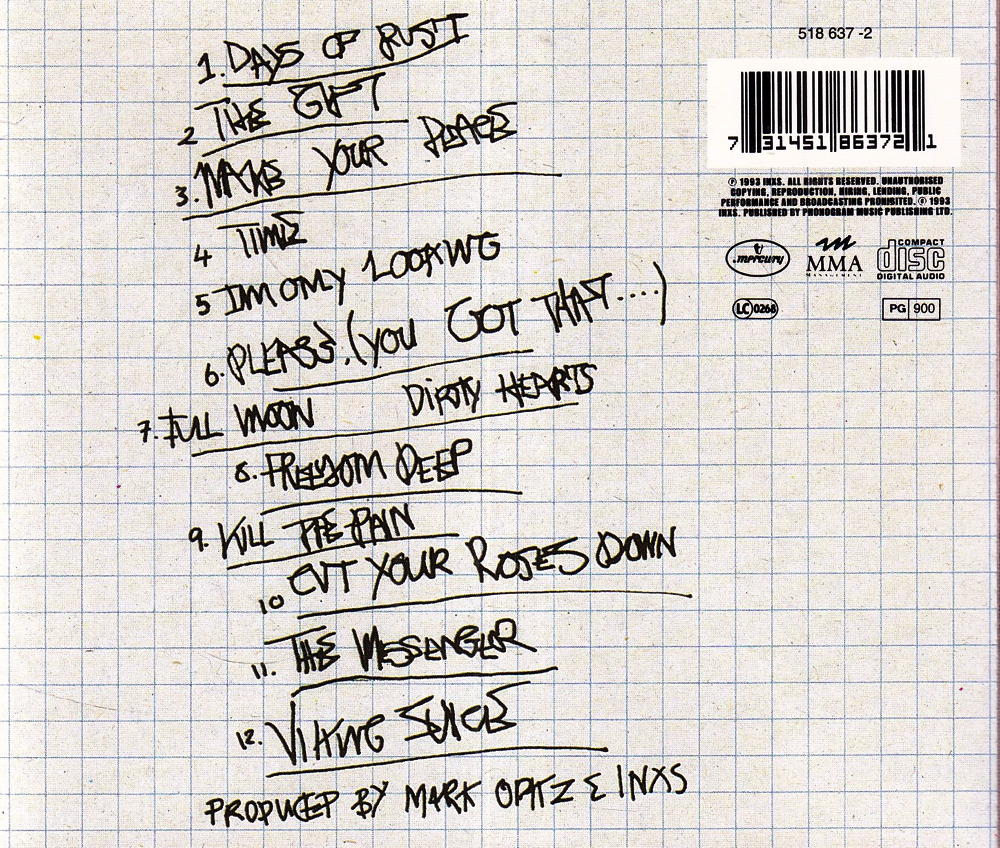 1. DAYS OF RUST
2 THE GIFT
3. MAKE YOUR PEACE
4 TIME
5 I'M ONLY LOOKING
6. PLEASE. (YOU GOT THAT....)
7. FULL MOON DIRTY HEARTS
8. FREEDOM DEEP
9. KILL THE PAIN
10 CUT YOUR ROSES DOWN
11. THE MESSENGER
12. VIKING JUICE
PRODUCED BY MARK OPITZ & INXS
518 637 -2
7 31451 86372 1
℗ 1993 INXS. ALL RIGHTS RESERVED. UNAUTHORISED
COPYING, REPRODUCTION, HIRING, LENDING, PUBLIC
PERFORMANCE AND BROADCASTING PROHIBITED. © 1993
INXS. PUBLISHED BY PHONOGRAM MUSIC PUBLISHING LTD.
mercury
MMA
MANAGEMENT
COMPACT
disc
DIGITAL AUDIO
LC 0268
PG 900